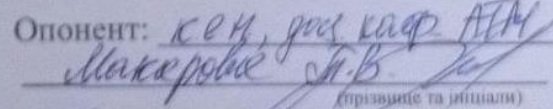 Опонент: кен, доц каф. АТМ
Макарове Т.В.
(прізвище та ініціали)